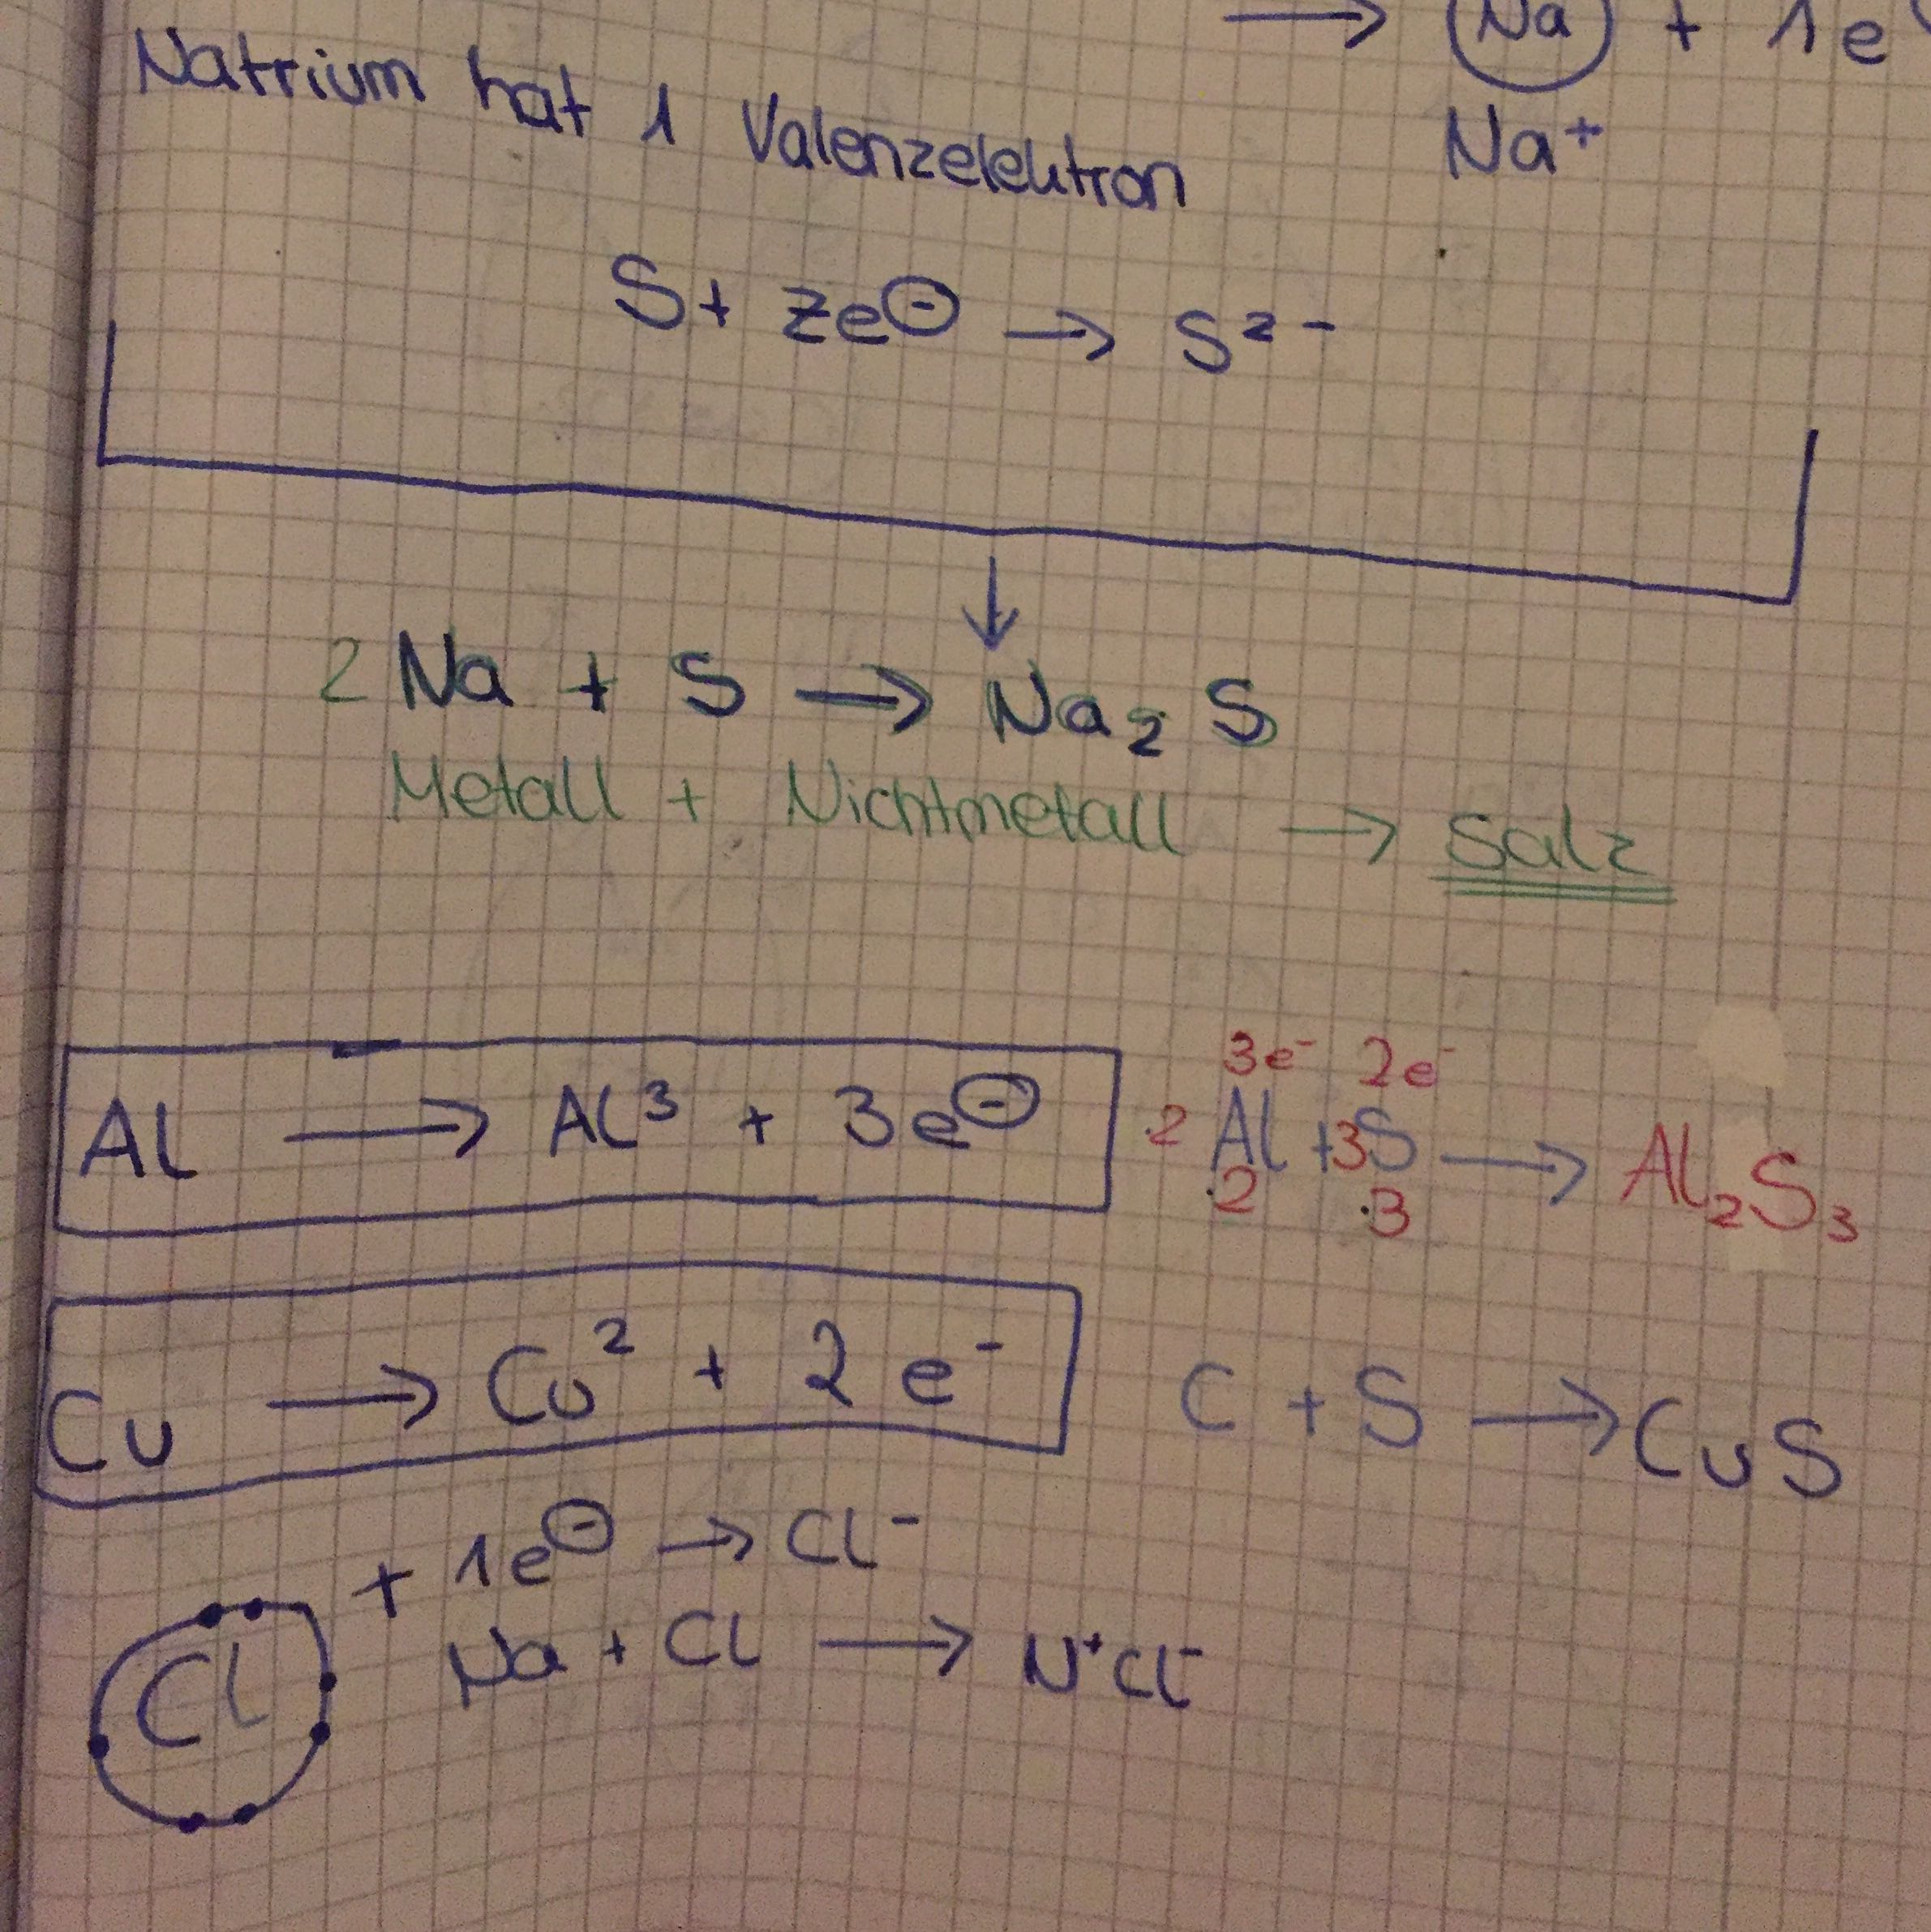 → Na + 1e
Natrium hat 1 Valenzelektron
Na⁺
S + 2e⊖ → S²⁻
↓
2 Na + S → Na₂S
Metall + Nichtmetall → Salz
3e⁻ 2e⁻
Al → Al³ + 3e⊖
·2 Al + 3S → Al₂S₃
·2 ·3
Cu → Cu² + 2e⁻
C + S → CuS
Cl + 1e⊖ → Cl⁻
Na + Cl → N⁺Cl⁻